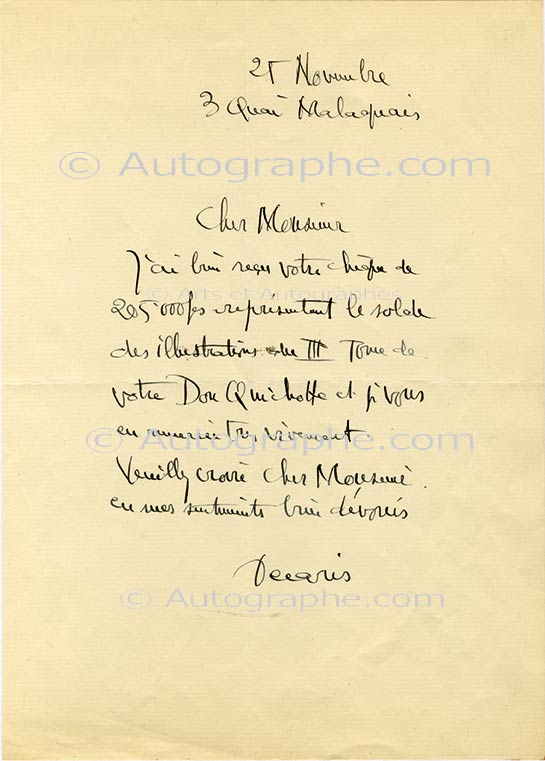 25 Novembre
3 Quai Malaquais
© Autographe.com
Cher Monsieur
J'ai bien reçu votre chèque de
© Arts et Autographes
205000fs représentant le solde
des illustrations du III Tome de
votre Don Quichotte et je vous
en remercie très vivement.
© Autographe.com
Veuillez croire Cher Monsieur
en mes sentiments bien dévoués
Decaris
© Autographe.com